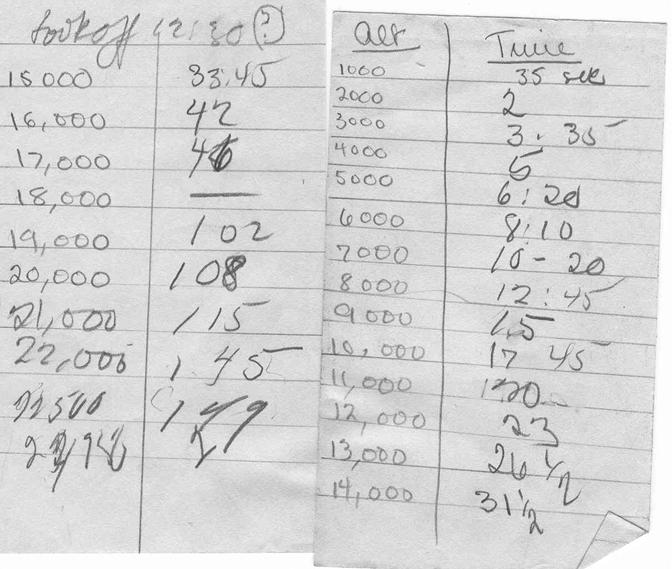 Tookoff 12:30 (?)
15000 33:45
16,000 42
17,000 46
18,000 —
19,000 102
20,000 108
21,000 115
22,000 1 45
22500 1
Alt Time
1000 35 sec
2000 2
3000 3:35
4000 5
5000 6:20
6000 8:10
7000 10-20
8000 12:45
9000 15
10,000 17 45
11,000 20
12,000 23
13,000 26 1/2
14,000 31 1/2